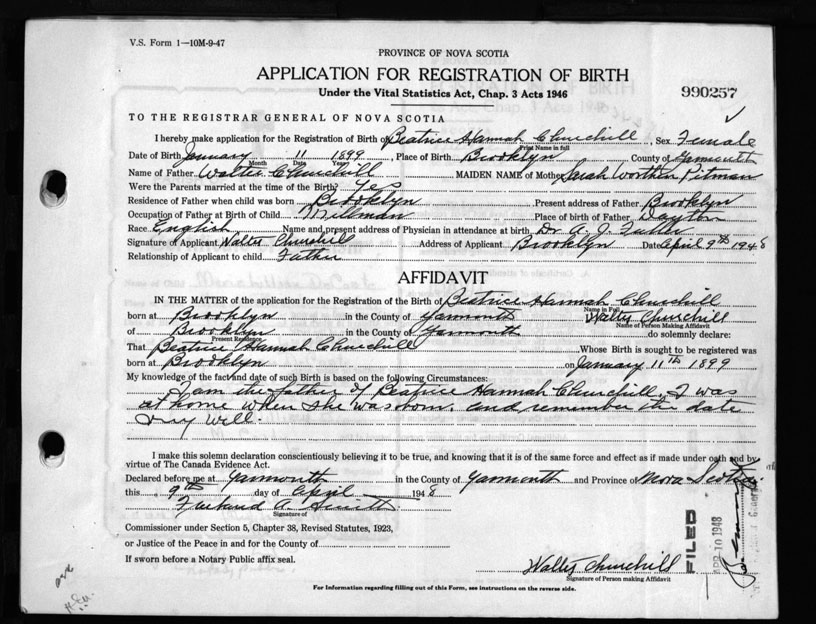 V.S. Form 1—10M-9-47
PROVINCE OF NOVA SCOTIA
APPLICATION FOR REGISTRATION OF BIRTH
Under the Vital Statistics Act, Chap. 3 Acts 1946
990257
TO THE REGISTRAR GENERAL OF NOVA SCOTIA
I hereby make application for the Registration of Birth of Beatrice Hannah Churchill, Sex Female
Print Name in full
Date of Birth January 11 1899, Place of Birth Brooklyn County of Yarmouth
Month Date Year
Name of Father Walter Churchill MAIDEN NAME of Mother Sarah Worthen Pitman
Were the Parents married at the time of the Birth? Yes
Residence of Father when child was born Brooklyn Present address of Father Brooklyn
Occupation of Father at Birth of Child Millman Place of birth of Father Dayton
Race English Name and present address of Physician in attendance at birth Dr. A. J. Fuller
Signature of Applicant Walter Churchill Address of Applicant Brooklyn Date April 9th 1948
Relationship of Applicant to child Father
AFFIDAVIT
IN THE MATTER of the application for the Registration of the Birth of Beatrice Hannah Churchill
Name in Full
born at Brooklyn in the County of Yarmouth Walter Churchill
Name of Person Making Affidavit
of Brooklyn in the County of Yarmouth do solemnly declare:
Present Residence
That Beatrice Hannah Churchill Whose Birth is sought to be registered was
born at Brooklyn on January 11th 1899
My knowledge of the fact and date of such Birth is based on the following Circumstances:
I am the father of Beatrice Hannah Churchill, I was
at home when she was born, and remember the date
very well.
I make this solemn declaration conscientiously believing it to be true, and knowing that it is of the same force and effect as if made under oath and by
virtue of The Canada Evidence Act.
Declared before me at Yarmouth in the County of Yarmouth and Province of Nova Scotia
this 9th day of April 1948
A.
Signature of
Commissioner under Section 5, Chapter 38, Revised Statutes, 1923,
or Justice of the Peace in and for the County of
If sworn before a Notary Public affix seal.
Walter Churchill
Signature of Person making Affidavit
FILED
APR 10 1948
For Information regarding filling out of this Form, see instructions on the reverse side.